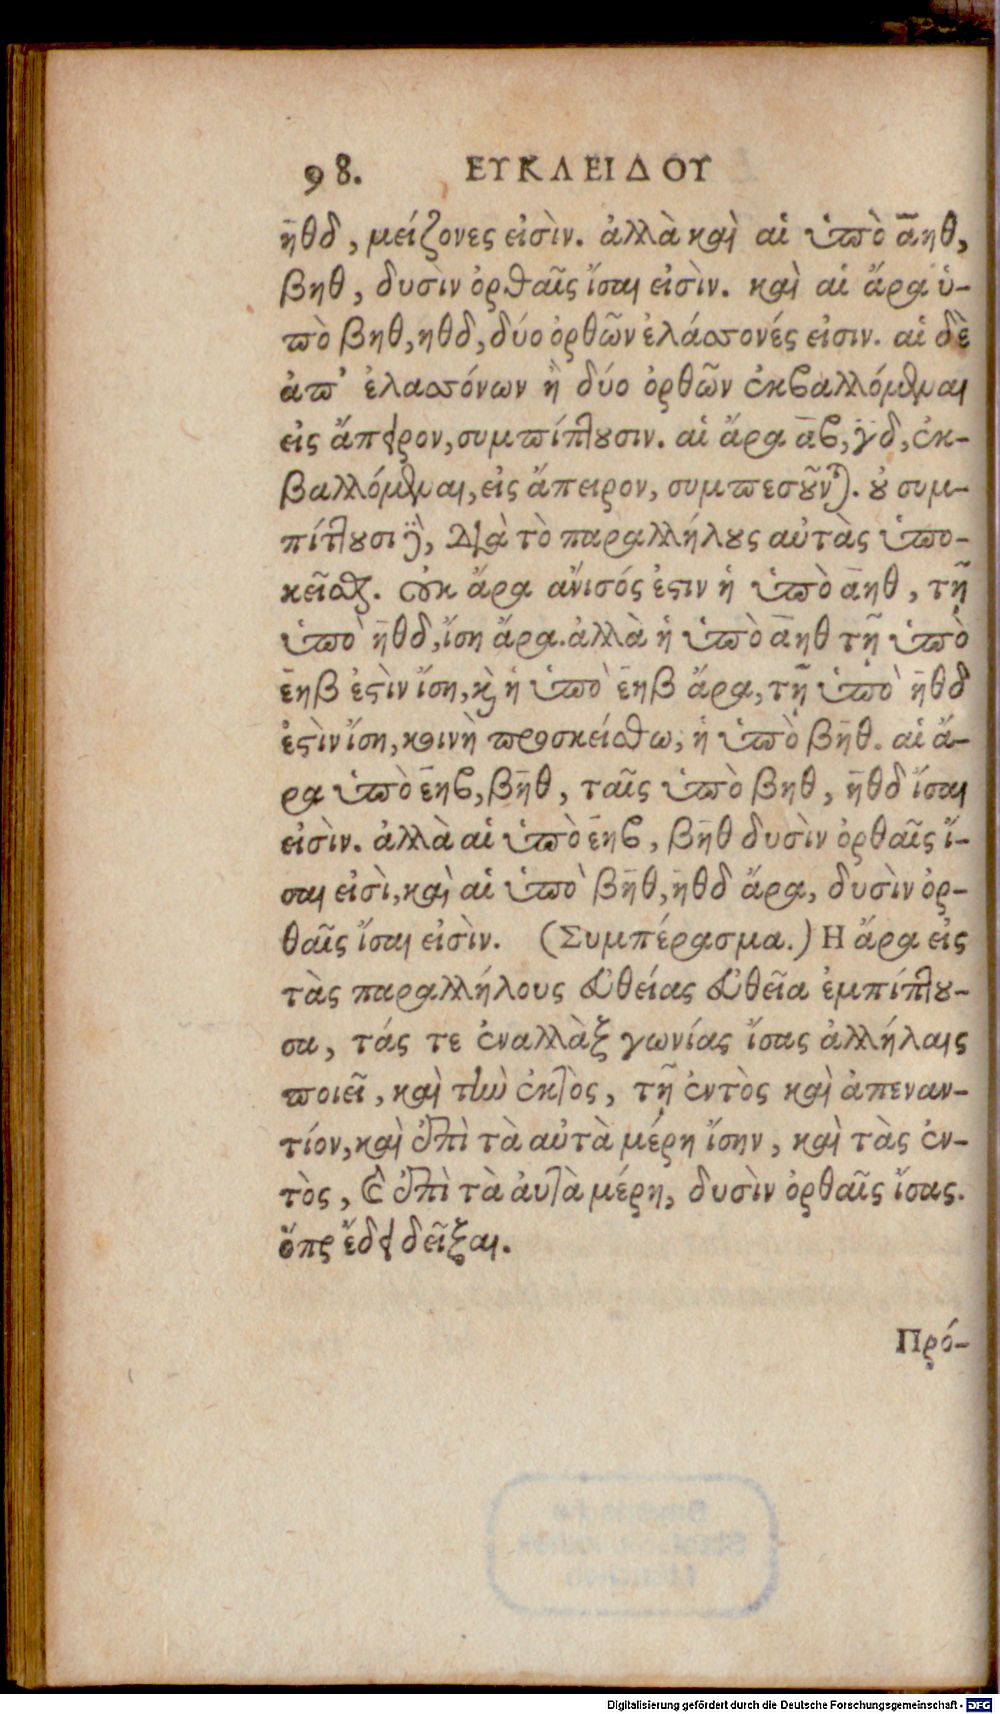 98. ΕΥΚΛΕΙΔΟΥ
η̄θδ, μείζονες εἰσὶν. ἀλλὰ καὶ αἱ ὑπὸ ᾱηθ,
βηθ, δυσὶν ὀρθαῖς ἴσαι εἰσὶν. καὶ αἱ ἄρα ὑ-
πὸ βηθ, ηθδ, δύο ὀρθῶν ἐλάσσονές εἰσιν. αἱ δὲ
ἀπ’ ἐλασσόνων ἢ δύο ὀρθῶν ἐκβαλλόμεναι
εἰς ἄπειρον, συμπίπτουσιν. αἱ ἄρα ᾱϐ, γ̄δ, ἐκ-
βαλλόμεναι, εἰς ἄπειρον, συμπεσοῦνται. οὐ συμ-
πίπτουσι δὲ, διὰ τὸ παραλλήλους αὐτὰς ὑπο-
κεῖσθαι. οὐκ ἄρα ἄνισός ἐστιν ἡ ὑπὸ ᾱηθ, τῇ
ὑπὸ η̄θδ, ἴση ἄρα. ἀλλὰ ἡ ὑπὸ ᾱηθ τῇ ὑπὸ
ε̄ηβ ἐστὶν ἴση, καὶ ἡ ὑπὸ ε̄ηβ ἄρα, τῇ ὑπὸ η̄θδ
ἐστὶν ἴση, κοινὴ προσκείσθω, ἡ ὑπὸ βη̄θ. αἱ ἄ-
ρα ὑπὸ ε̄ηϐ, βη̄θ, ταῖς ὑπὸ βηθ, η̄θδ ἴσαι
εἰσὶν. ἀλλὰ αἱ ὑπὸ ε̄ηϐ, βη̄θ δυσὶν ὀρθαῖς ἴ-
σαι εἰσὶ, καὶ αἱ ὑπὸ βη̄θ, η̄θδ ἄρα, δυσὶν ὀρ-
θαῖς ἴσαι εἰσὶν. (Συμπέρασμα.) Η ἄρα εἰς
τὰς παραλλήλους εὐθείας εὐθεῖα ἐμπίπτου-
σα, τάς τε ἐναλλὰξ γωνίας ἴσας ἀλλήλαις
ποιεῖ, καὶ τὴν ἐκτὸς, τῇ ἐντὸς καὶ ἀπεναν-
τίον, καὶ ἐπὶ τὰ αὐτὰ μέρη ἴσην, καὶ τὰς ἐν-
τὸς, καὶ ἐπὶ τὰ ἀυτὰ μέρη, δυσὶν ὀρθαῖς ἴσας.
ὅπερ ἔδει δεῖξαι.
Πρό-
Digitalisierung gefördert durch die Deutsche Forschungsgemeinschaft - DFG